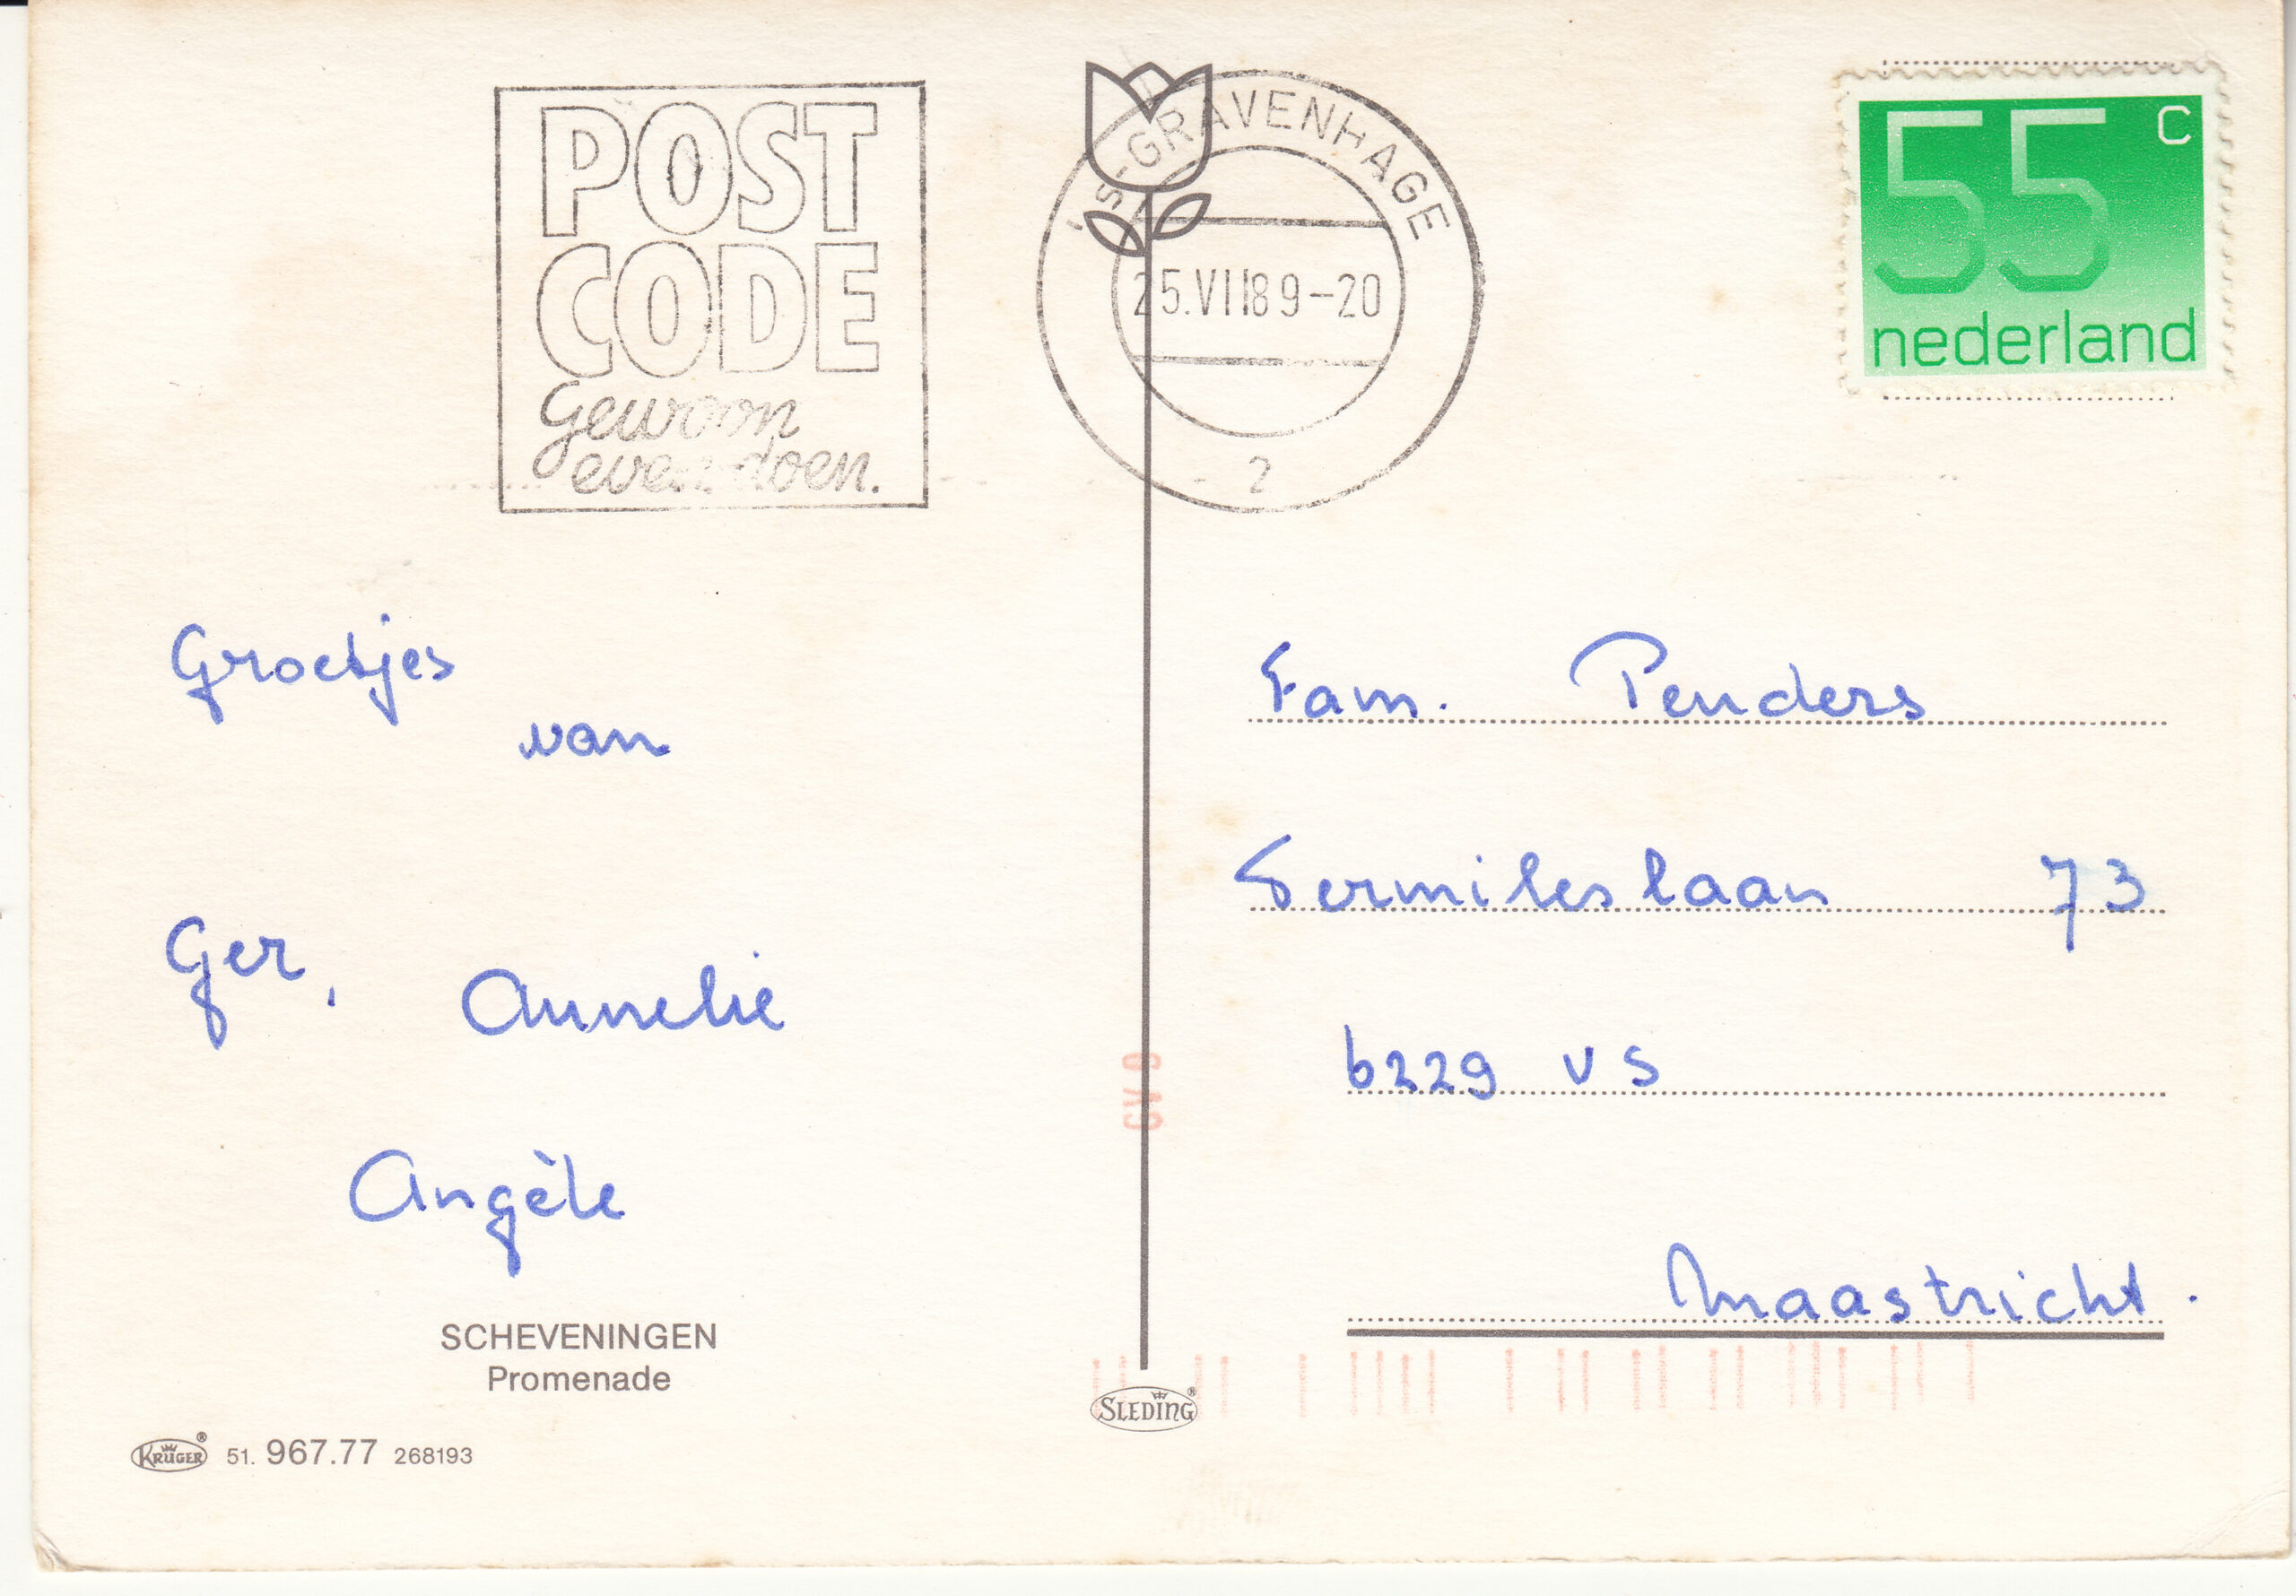 POST
CODE
gewoon
even doen.
's-GRAVENHAGE
25.VII89-20
2
55 c
nederland
Groetjes
van
Ger, Annelie
Angèle
Fam. Penders
Vermileslaan 73
6229 VS
Maastricht.
SCHEVENINGEN
Promenade
KRÜGER® 51. 967.77 268193
SLEDING®